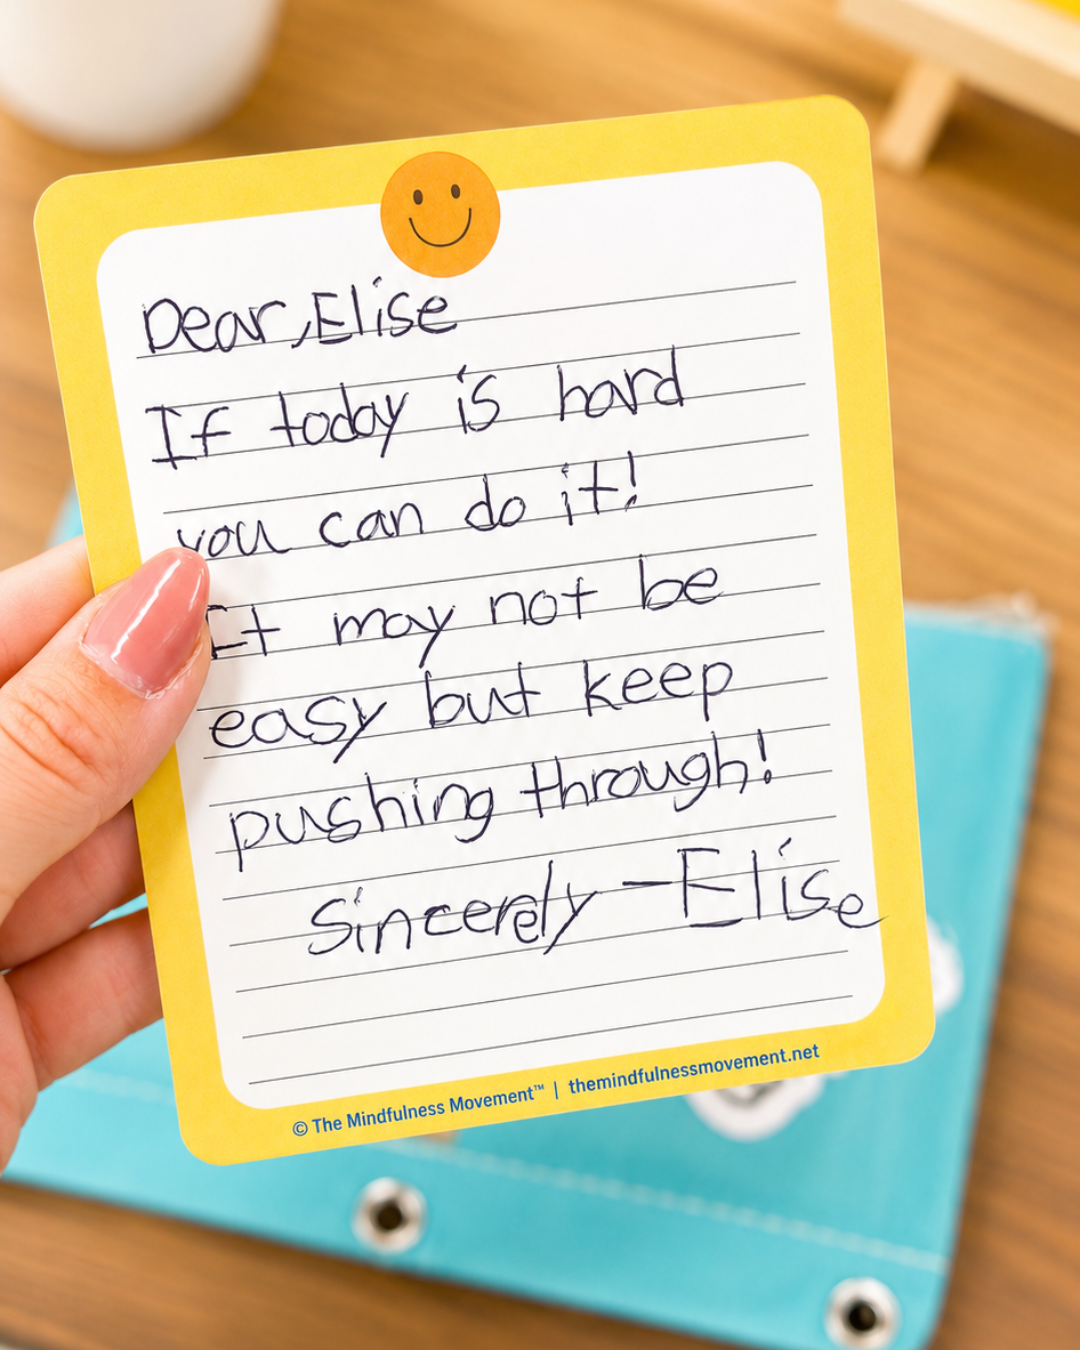 Dear, Elise
If today is hard
you can do it!
It may not be
easy but keep
pushing through!
Sincerely - Elise
© The Mindfulness Movement™ | themindfulnessmovement.net